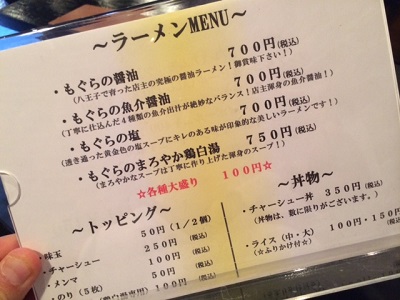 ～ラーメンMENU～
・もぐらの醤油 700円(税込)
(八王子で育った店主の究極の醤油ラーメン！御賞味下さい！)
・もぐらの魚介醤油 700円(税込)
(丁寧に仕込んだ４種類の魚介出汁が絶妙なバランス！店主渾身の魚介醤油！)
・もぐらの塩 700円(税込)
(透き通った黄金色の塩スープにキレのある味が印象的な美しいラーメンです！)
・もぐらのまろやか鶏白湯 750円(税込)
(まろやかなスープは丁寧に作り上げた渾身のスープ！)
☆各種大盛り 100円☆
～トッピング～
・味玉 50円(1/2個)
・チャーシュー 250円 (税込)
・メンマ 100円 (税込)
・のり(5枚) 50円 (税込)
100円 (税込)
～丼物～
・チャーシュー丼 350円(税込)
(丼物は、数に限りがございます。)
・ライス(中・大) 100円・150円
(☆ふりかけ付☆) (税込)